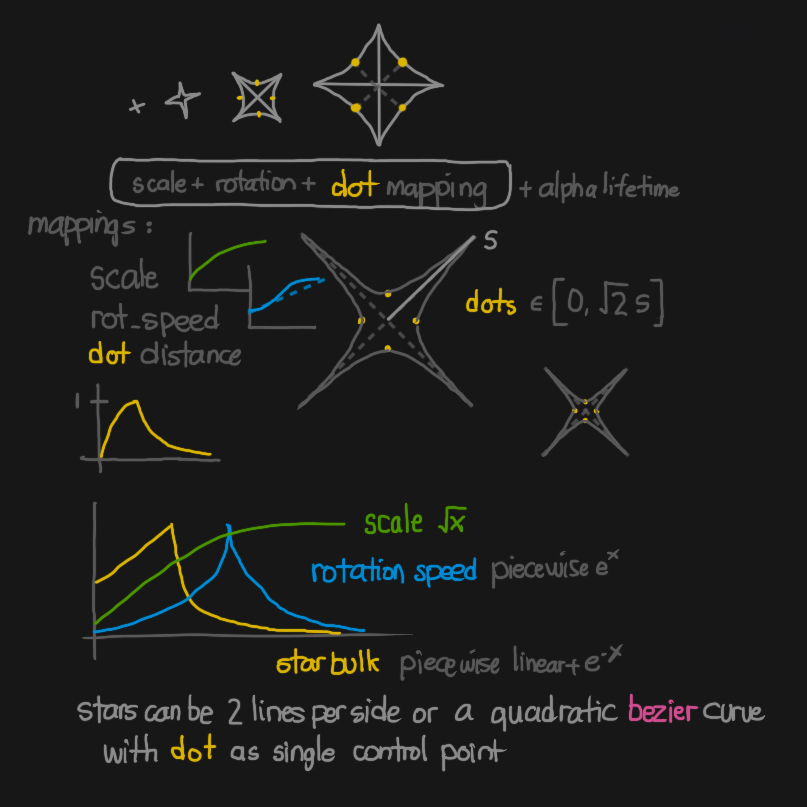 scale + rotation + dot mapping + alpha lifetime
mappings :
scale
rot_speed
dot distance
S
dots ∈ [0, √2 s]
1
scale √x
rotation speed piecewise e^x
star bulk piecewise linear + e^-x
stars can be 2 lines per side or a quadratic bezier curve
with dot as single control point